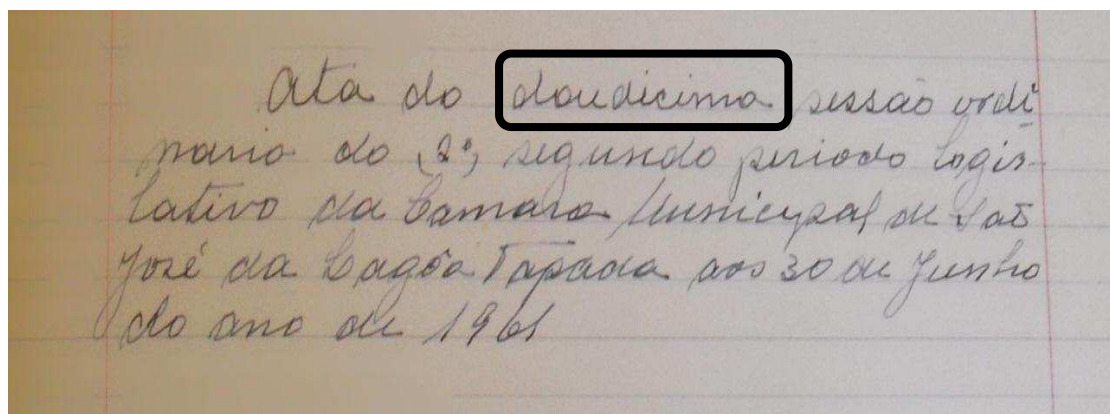 Ata do doudicima sessão ordi
nario do (2º) segundo periodo logis-
lativo da Camara Municipal de São
José da Lagôa Tapada aos 30 de Junho
do ano de 1961